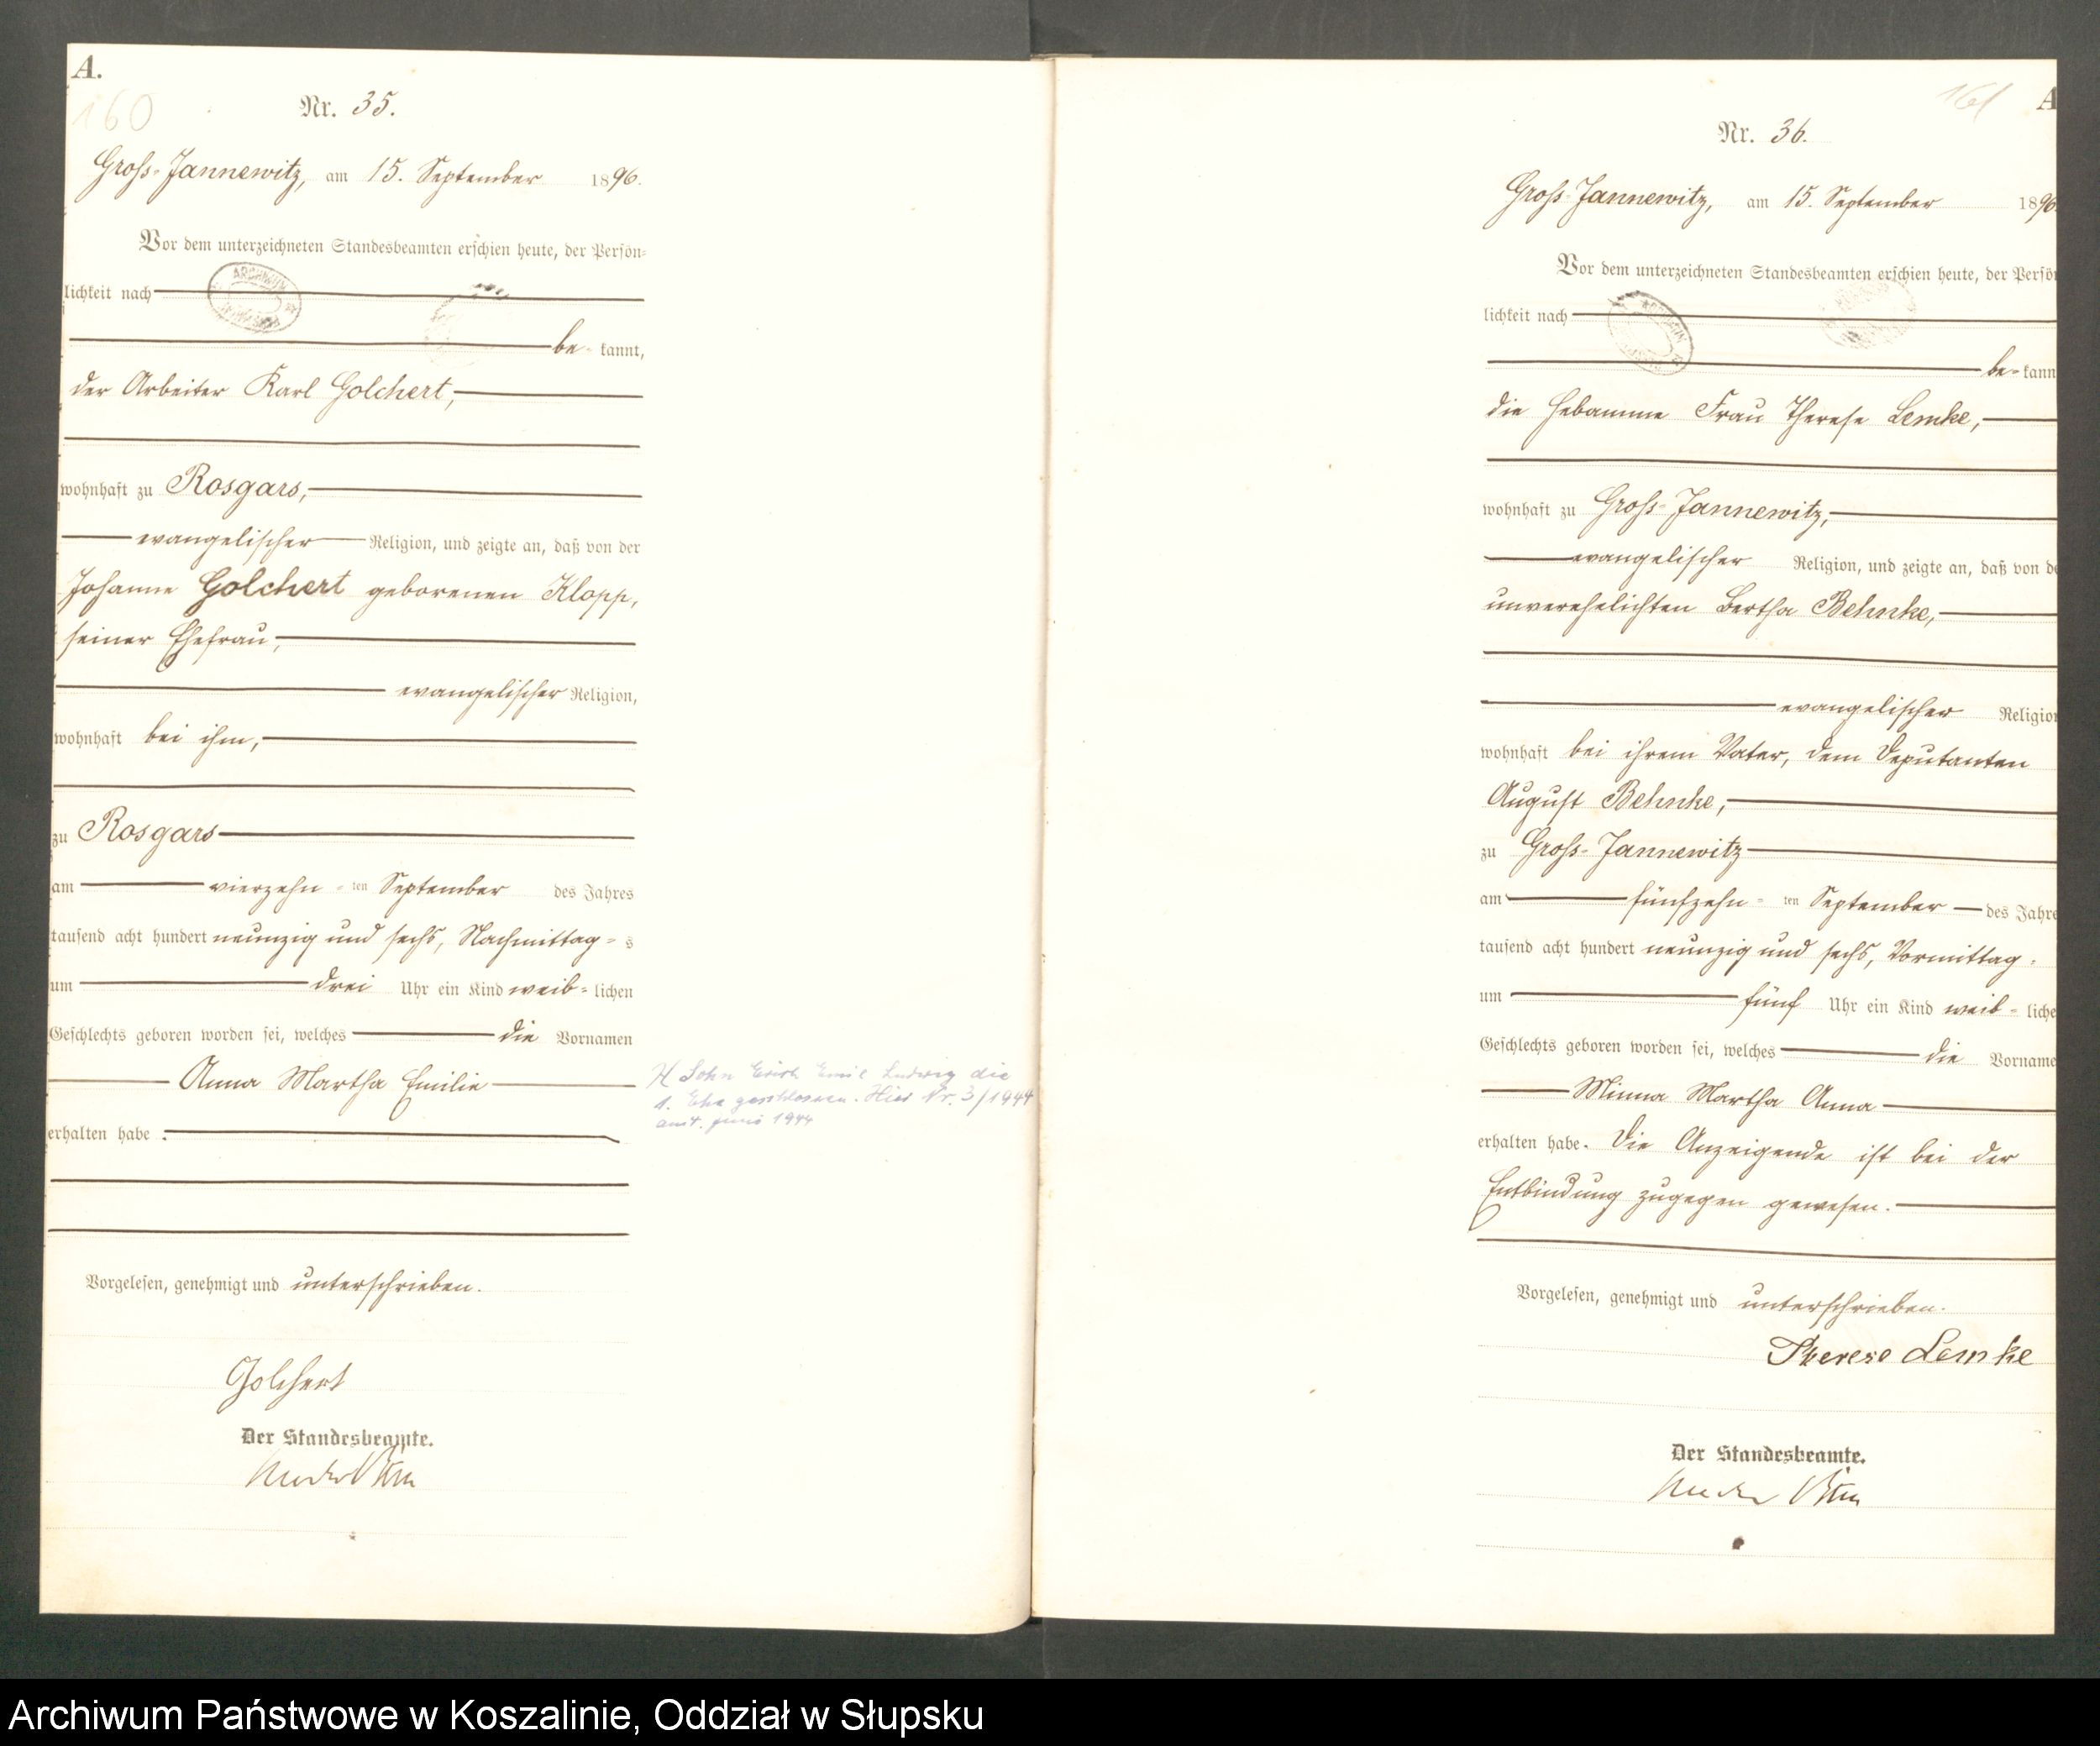 A.
160
Nr. 35.
Groß-Jannewitz, am 15. September 1896.
Vor dem unterzeichneten Standesbeamten erschien heute, der Persön-
lichkeit nach
be- kannt,
der Arbeiter Karl Golchert,
wohnhaft zu Rosgars,
evangelischer Religion, und zeigte an, daß von der
Johanne Golchert geborenen Klopp,
seiner Ehefrau,
evangelischer Religion,
wohnhaft bei ihm,
zu Rosgars
am vierzehn - ten September des Jahres
tausend acht hundert neunzig und sechs, Nachmittag - s
um drei Uhr ein Kind weib- lichen
Geschlechts geboren worden sei, welches die Vornamen
Anna Martha Emilie
erhalten habe.
Vorgelesen, genehmigt und unterschrieben.
Golchert
Der Standesbeamte.
H Sohn Erich Emil Ludwig die
1. Ehe geschlossen. Hier Nr. 3/1944
1944
161
A
Nr. 36.
Groß-Jannewitz, am 15. September 1896
Vor dem unterzeichneten Standesbeamten erschien heute, der Persö
lichkeit nach
be- kann
die Hebamme Frau Therese Lemke,
wohnhaft zu Groß-Jannewitz,
evangelischer Religion, und zeigte an, daß von de
unverehelichten Bertha Behnke,
evangelischer Religion
wohnhaft bei ihrem Vater, dem Deputanten
August Behnke,
zu Groß-Jannewitz
am fünfzehn - ten September des Jahre
tausend acht hundert neunzig und sechs, Vormittag -
um fünf Uhr ein Kind weib - liche
Geschlechts geboren worden sei, welches die Vorname
Minna Martha Anna
erhalten habe. Die Anzeigende ist bei der
Entbindung zugegen gewesen.
Vorgelesen, genehmigt und unterschrieben.
Therese Lemke
Der Standesbeamte.
Archiwum Państwowe w Koszalinie, Oddział w Słupsku